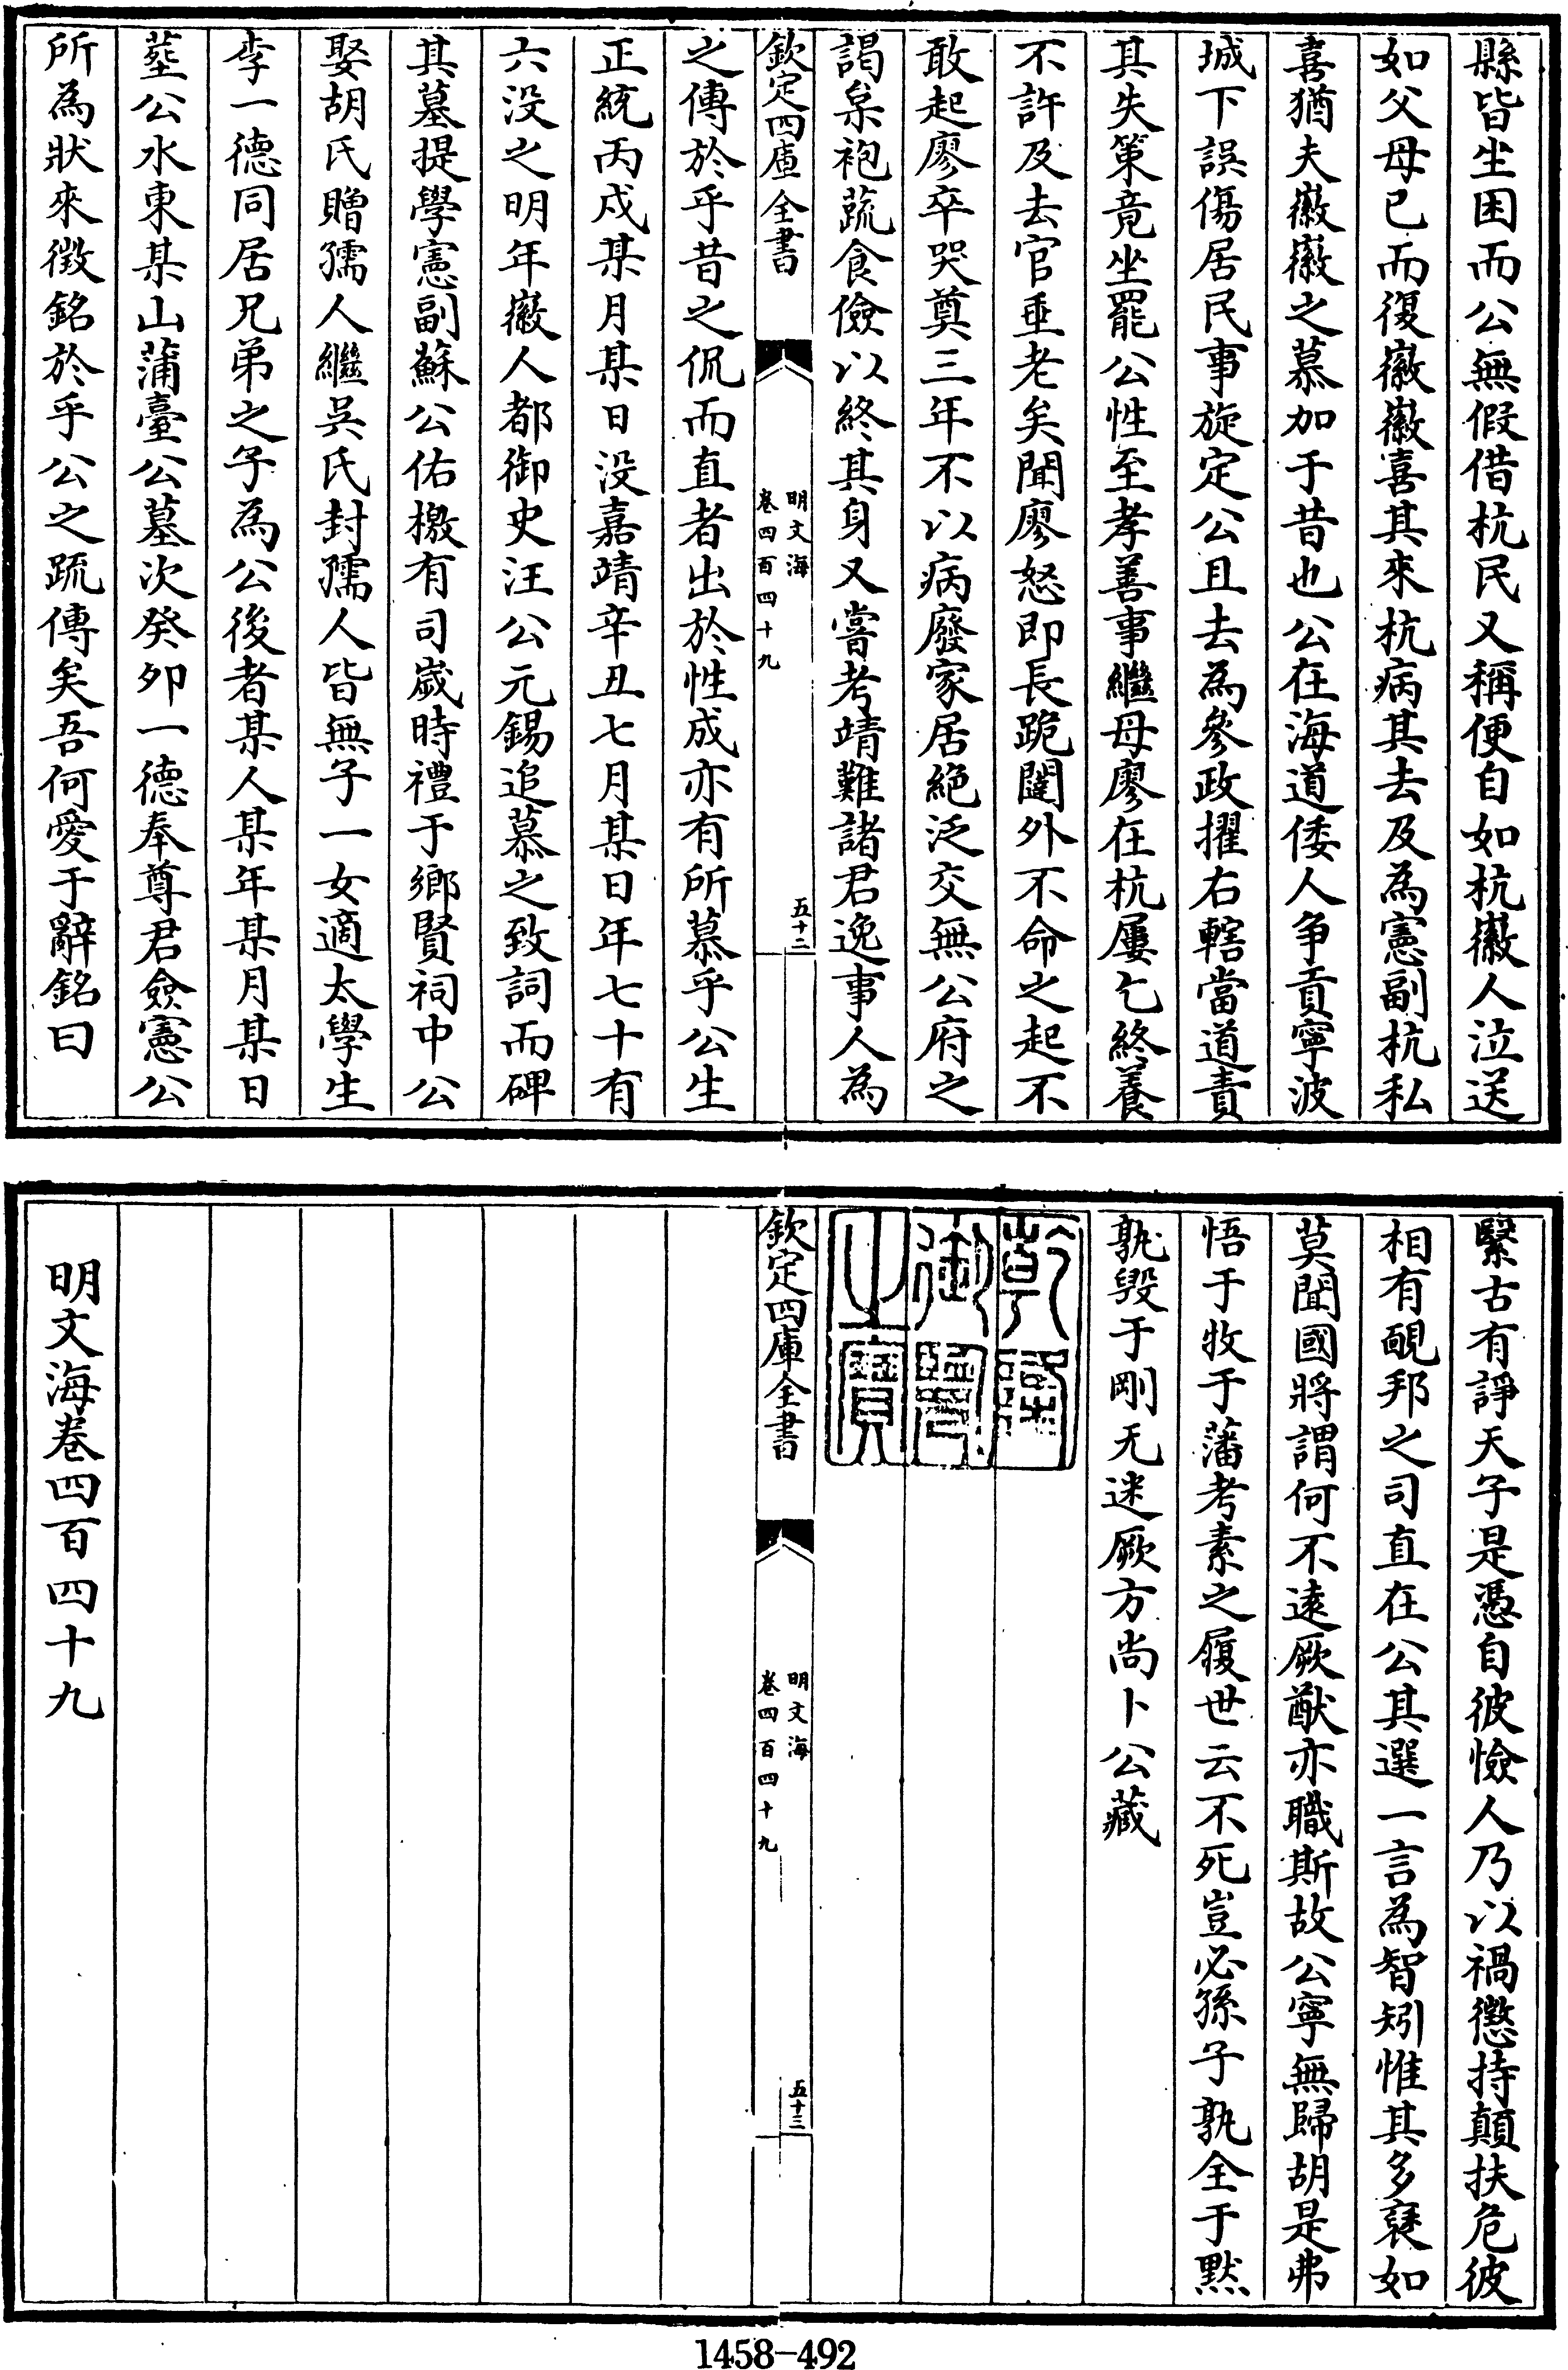 縣皆坐困而公無假借杭民又稱便自如杭徽人泣送
如父母已而復徽徽喜其來杭病其去及為憲副杭私
喜猶夫徽徽之慕加于昔也公在海道倭人争貢寧波
城下誤傷居民事旋定公且去為參政擢右轄當道責
其失策竟坐罷公性至孝善事繼母廖在杭屢乞終養
不許及去官垂老矣聞廖怒即長跪闥外不命之起不
敢起廖卒哭奠三年不以病廢家居絶泛交無公府之
謁枲袍蔬食儉以終其身又嘗考靖難諸君逸事人為
欽定四庫全書
明文海
卷四百四十九
五十二
之傳於乎昔之侃而直者出於性成亦有所慕乎公生
正統丙戍某月某日没嘉靖辛丑七月某日年七十有
六没之明年徽人都御史汪公元錫追慕之致詞而碑
其墓提學憲副蘇公佑檄有司歲時禮于鄉賢祠中公
娶胡氏贈孺人繼吳氏封孺人皆無子一女適太學生
李一德同居兄弟之子為公後者某人某年某月某日
塟公水東某山蒲臺公墓次癸夘一德奉尊君僉憲公
所為狀來徵銘於乎公之疏傳矣吾何愛于辭銘曰
繄古有諍天子是憑自彼憸人乃以禍懲持顛扶危彼
相有覥邦之司直在公其選一言為智矧惟其多褎如
莫聞國將謂何不逺厥猷亦職斯故公寧無歸胡是弗
悟于牧于藩考素之履世云不死豈必孫子孰全于黙
孰毁于剛无迷厥方尚卜公藏
乾隆
御覽
之寶
欽定四庫全書
明文海
卷四百四十九
五十三
明文海卷四百四十九
1458-492